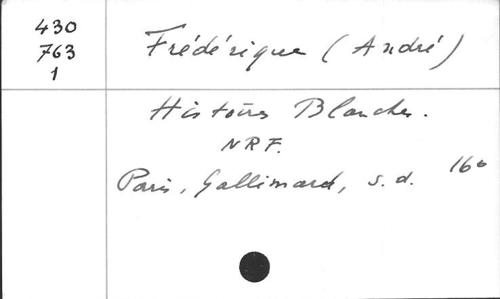 430
763
1
Frédérique (André)
Histoires Blanches.
NRF.
Paris, Gallimard, s.d. 16°